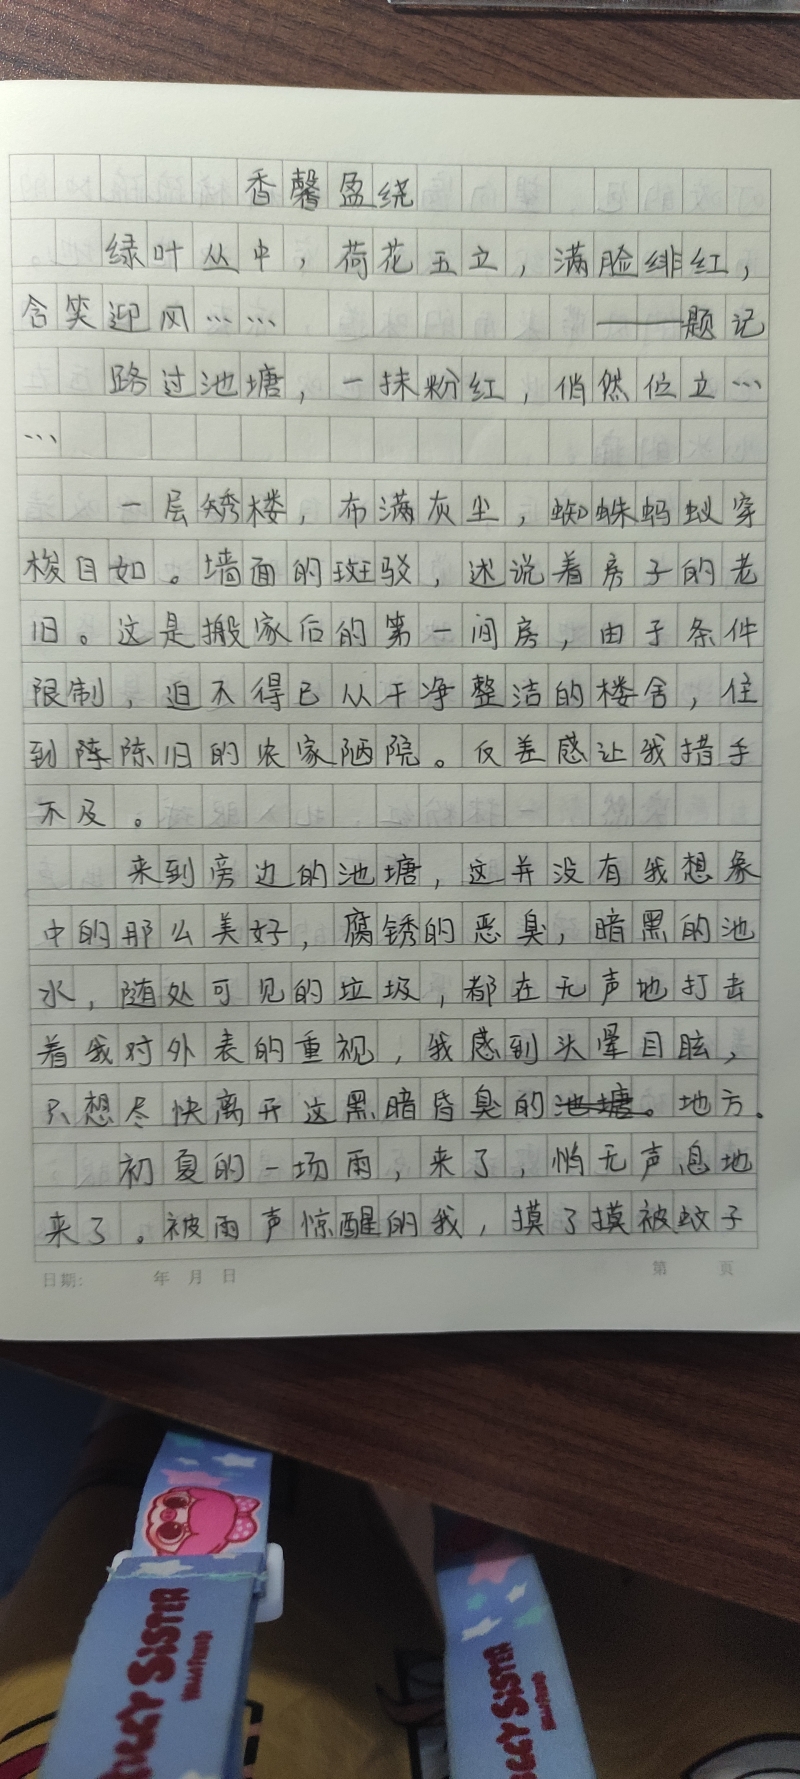 香馨盈绕
绿叶丛中，荷花玉立，满脸绯红，
含笑迎风……　——题记
路过池塘，一抹粉红，俏然位立…
…
一层矮楼，布满灰尘，蜘蛛蚂蚁穿
梭自如。墙面的斑驳，述说着房子的老
旧。这是搬家后的第一间房，由于条件
限制，迫不得已从干净整洁的楼舍，住
到陈旧的农家陋院。反差感让我措手
不及。
来到旁边的池塘，这并没有我想象
中的那么美好，腐锈的恶臭，暗黑的池
水，随处可见的垃圾，都在无声地打击
着我对外表的重视，我感到头晕目眩，
只想尽快离开这黑暗昏臭的地方。
初夏的一场雨，来了，悄无声息地
来了。被雨声惊醒的我，摸了摸被蚊子
日期: 年 月 日 第 页
SISTER
SISTER